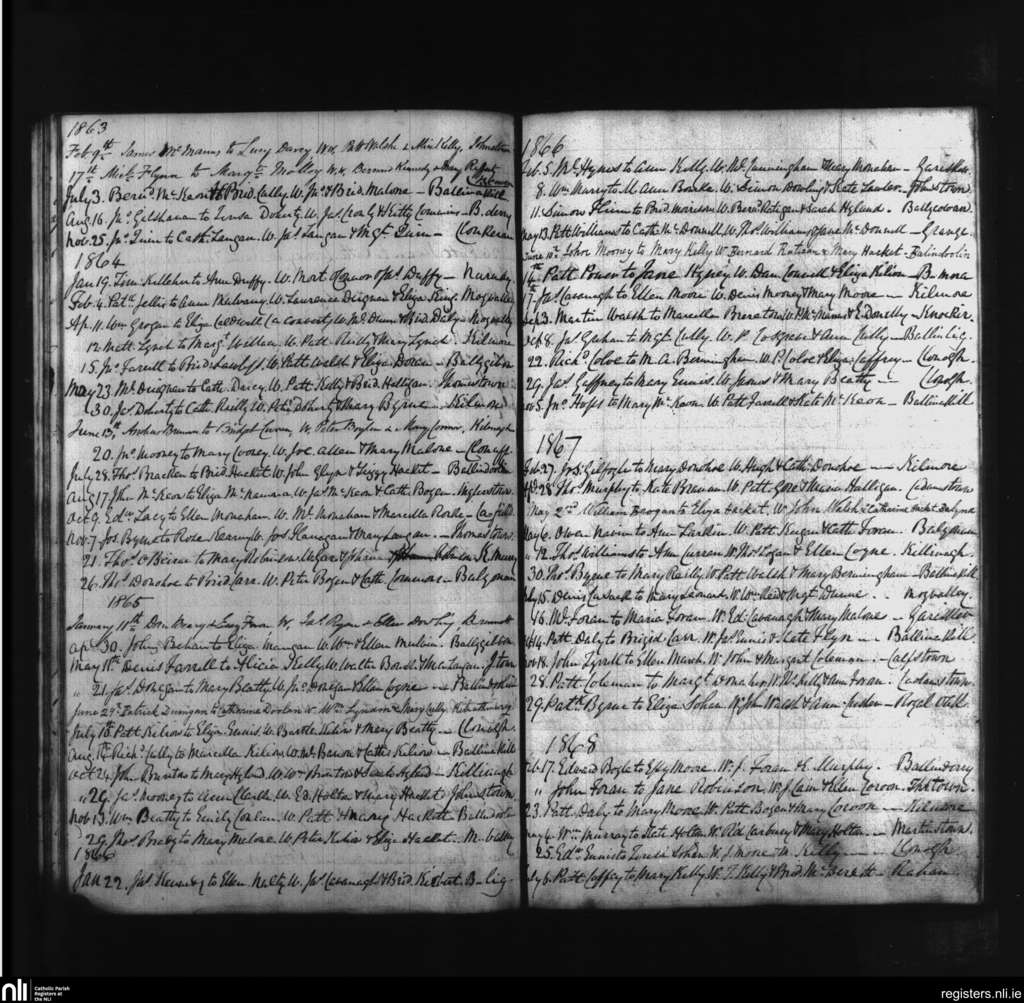 1863
Feb 9th James McManus to Lucy Darcy Wx. Patt Walsh & Mind Kelly Johnstown
17th Mich. Flynn to Margt. Molloy Wx. Bernard Kennedy & Mary
July 3. Bernd. McKeon to Brid. Cully. W. Jno. & Brid. Malone - Ballina
Aug. 16. Jno. Gilshanan to Teresa Doherty. W. Jas. & Kitty Comins - B. derry
Nov. 25. Jno. Quin to Cath. Langan. W. Jas. Langan & Mgt. Quin - Clonkeran
1864
Jan 19. Tim. Kelleher to Ann Duffy - W. Mort OConor & Jas. Duffy - Nurney
Feb. 4. Patk. Jellis to Anne Mulvany. W. Laurence Duignan & Eliza King. Moyvalley
Ap. 11. Wm. Grogan to Eliza Caldwell (a convert) W. Ml. Dunn & Brid. Daly - Moyvally
12. Matt. Lynch to Marg. W. Patt Reilly & Mary Lynch. Kilmore
15. Jno. Farrell to Brid. Lawless W. Patt Walsh & Eliza Doran - Ballygibbon
May 23. Ml. Duignan to Cath. Darcy. W. Patt. Kelly & Brid. Halligan. Thomastown
30. Jas. Doherty to Cath. Reilly. W. Peter Doherty & Mary Byrne - Kilmore
June 13th Andrew to Bridget Curran, W. Peter Boylan & Mary Connor, Kilnagh
20. Jno. Mooney to Mary Coorey. W. Joe. Allen & Mary Malone - Clonuff
July 28. Thos. Bracken to Brid. Hackett. W. John Glyn & Lizzy Hacket - Ballindoolin
Aug 17. John McKeon to Eliza McNamara. W. Jas. McKeon & Cath. Bogan. Mylerstown
Oct 9. Edw. Lacy to Ellen Monahan W. Ml. Monahan & Marcella Rorke -
Nov. 7. Jos. Byrne to Rose Kearny W. Jos. Flanagan & Mary Langan. - Thomastown
21. Thos. O Beirne to Mary Robinson W. &
26. Thos. Donohoe to Brid Carr. W. Peter Bogan & Cath. Connors - Balyonan
1865
January 10th Den. to Lucy W. Jas. Ryan & Ellen
Ap. 30. John Behan to Eliza Mangan W. Wm. & Ellen Mulvin. Ballygibbon
May 11th Denis Farrell to Alicia Kelly W. Walter & Mary Fagan. J. town
" 21. Jas. Donegan to Mary Beatty W. Jno. Donegan & Ellen Coyne - Ballindoolin
June 29th Patrick Dunigan to Catherine Doolan W. Wm. Lyndon & Mary Cully. Kilrathmurry
July 18. Patt. Kilion to Eliza Ennis. W. Bartle Kilion & Mary Beatty - Clonogh.
Aug. 14. Richd. Cully to Marcella Kilion W. Ml. Banon & Cathe Kilion - Ballina Kill
Oct 24. John Brunton to Mary Hyland W. Wm. Brunton & Sarah Hyland - Killinagh
" 29. Jas. Mooney to Ann Clarke W. Ed. Holton & Mary Hackett Johnstown
Nov 13. Wm. Beatty to Emily Conlan W. Patt & Mary Hackett Ballindoolin
29. Thos. Brady to Mary Malone. W. Peter Kilion & Eliza Hackett. M. valley
1866
Jan 22. Jas. Hennesy to Ellen Nalty. W. Jas. Cavanagh & Brid. B - lig
1866
Feb. 5. Ml. Hynes to Ann Kelly. W. Ml. Cunningham & Mary Monahan - Garisker
8. Wm. Murry to M. Ann Bourke. W. Simon Dowling & Kate Lawler - Johnstown.
11. Simon Flinn to Brid. Morrison. W. Bernd. Ratigan & Sarah Hyland. Ballycowan.
May 13. Patt Williams to Cath. McDonnell. W. Thos. Williams & Jane McDonnell - Grange.
June 10th John Mooney to Mary Kelly W. Bernard Rattican & Mary Hacket - Balindoolin
14th Patt Power to Jane Hyney W. Dan Connell & Eliza Kilion - B. nora
17. Jas. Cavanagh to Ellen Moore W. Denis Mooney & Mary Moore - Kilmore
Sep 3. Martin Walsh to Marcella Brereton W. P. McManus & E. Donelly - Knockir.
Oct 8. Jas. Graham to Mgt. Cully. W. P. Cosgrave & Ann Cully - Ballinlig.
22. Richd. Coloe to M. A. Bermingham. W. P. Coloe & Eliza Caffrey - Clonogh.
29. Jas. Gaffney to Mary Ennis. W. James & Mary Beatty - Clonogh.
Nov 5. Jno. Hops to Mary McKeon. W. Patt Farrell & Kate McKeon - Ballina Kill
1867
Feb. 27. Jos. Gilfoyle to Mary Donohoe W. Hugh & Cath. Donohoe - Kilmore
28. Thos. Murphy to Kate Brenan. W. Patt. Gore & Maria Halligan. Cadamstown
May 2nd William Brogan to Eliza Hacket. W. John Walsh & Catherine Balyna
May 6. Owen Nevin to Ann Larkin W. Patt. Keegan & Kath Foran. Balyonan
" 12. Thos. Williams to Ann Curran W. Thos. Logan & Ellen Coyne. Killinagh.
30. Thos. Byrne to Mary Reilly W. Patt. Walsh & Mary Bermingham - Ballina Kill
July 15. Denis Cusack to Mary Leonard. W. Wm. Reid & Mgt. Dunne. - Moyvalley.
16. Ml. Foran to Maria Foran. W. Ed. Cavanagh & Mary Malone - Garisker
14. Patt. Daly to Brigid Carr. W. Jas. Ennis & Kate Flyn - Ballina Kill
Nov 18. John Tyrell to Ellen March. W. John & Margaret Coleman. - Calfstown
28. Patt Coleman to Margt. Donahoe W. Ml. Kelly & Ann Foran. Cadamstown
29. Patk. Byrne to Eliza Johan. W. Jn. Walsh & Ann Cullen - Royal Oak.
1868
Feb. 17. Edward Boyle to Essy Moore. W. J. Foran & E. Murphy. Ballinderry
" John Foran to Jane Robinson. W. J Cain & Ellen Coroon. Thxtown.
23. Patt. Daly to Mary Moore W. Patt. Bogan & Mary Coroon - Kilmore
May 4. Wm. Murray to Kate Holton. W. Old Carbury & Mary Holton - Martinstown.
25. Edw. Ennis to Teresa Johan W. J. Moore & M. Kelly - Clonogh.
July 6. Patt. Caffey to Mary Kelly W. T. Kelly & Brid. McDerott - Rahan
nli Catholic Parish Registers at the NLI
registers.nli.ie